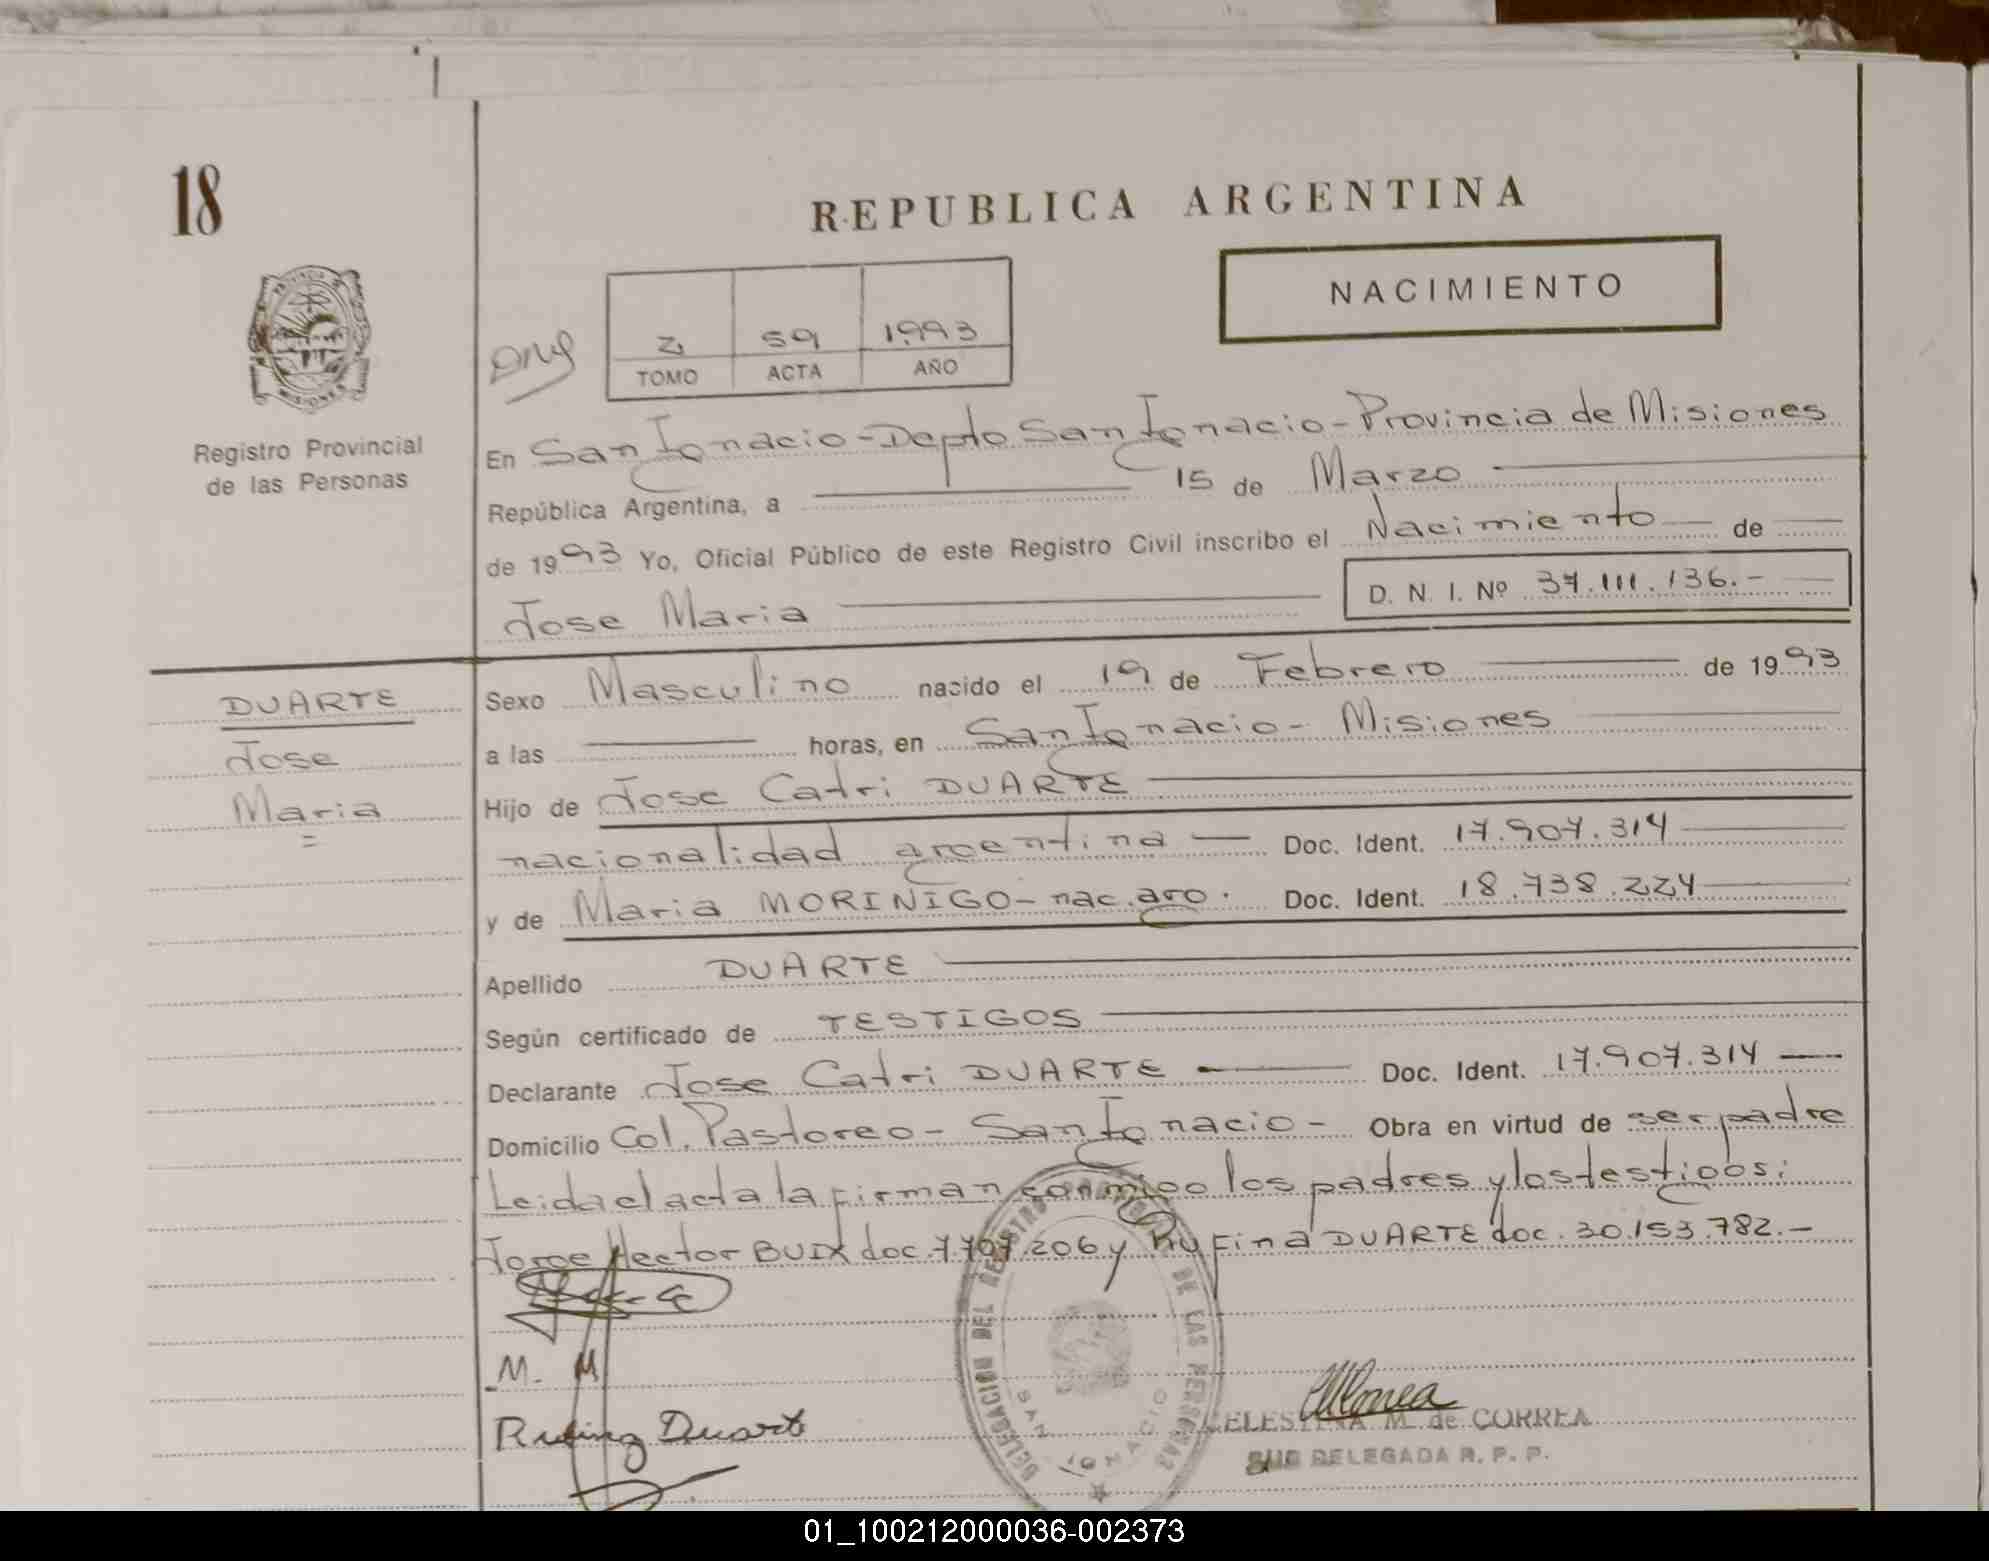 18
REPUBLICA ARGENTINA
NACIMIENTO
2 59 1993
TOMO ACTA AÑO
PROVINCIA DE MISIONES
Registro Provincial
de las Personas
En San Ignacio - Depto San Ignacio - Provincia de Misiones
República Argentina, a 15 de Marzo
de 1993 Yo, Oficial Público de este Registro Civil inscribo el Nacimiento de
Jose Maria D. N. I. Nº 37.111.136.-
DUARTE
Jose
Maria
Sexo Masculino nacido el 19 de Febrero de 1993
a las horas, en San Ignacio - Misiones
Hijo de Jose Catri DUARTE
nacionalidad argentina Doc. Ident. 17.907.314
y de Maria MORINIGO - nac. arg. Doc. Ident. 18.738.224
Apellido DUARTE
Según certificado de TESTIGOS
Declarante Jose Catri DUARTE Doc. Ident. 17.907.314
Domicilio Col. Pastoreo - San Ignacio - Obra en virtud de ser padre
Leida el acta la firman conmigo los padres y los testigos:
Jorge Hector BUIX doc. 7.707.206 y Rufina DUARTE doc. 30.153.782.-
M. M
Rufina Duarte
DELEGACION DEL REGISTRO DE LAS PERSONAS
SAN IGNACIO
CELESTINA M. de CORREA
SUB DELEGADA R. P. P.
01_100212000036-002373